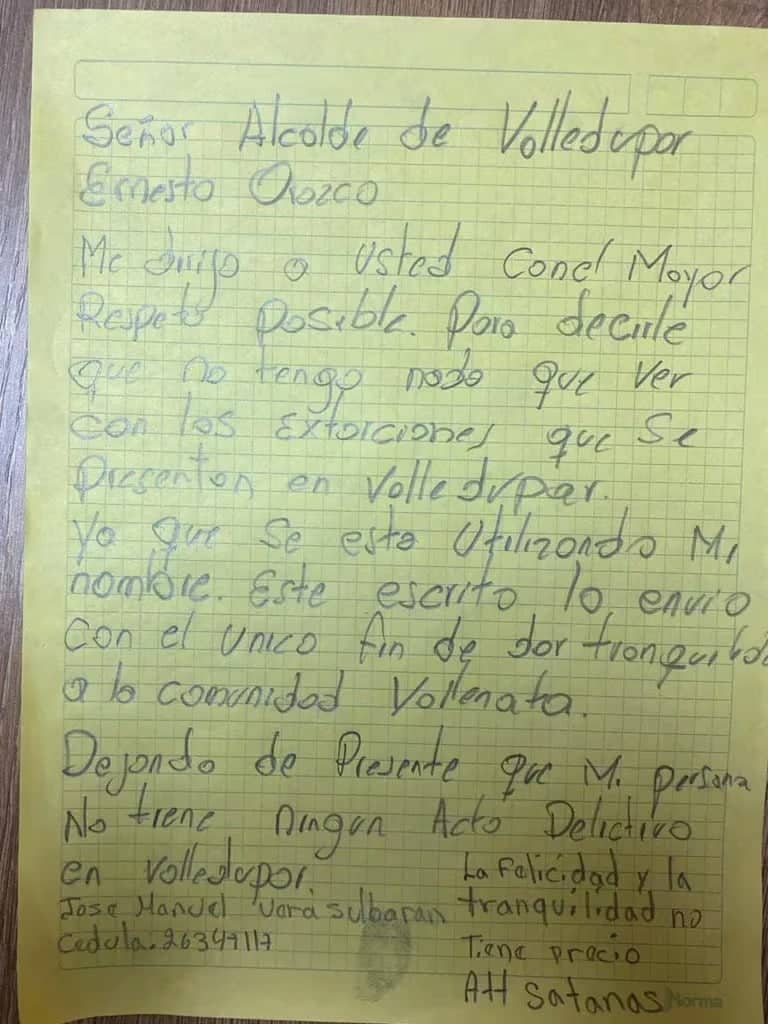 Señor Alcalde de Valledupar
Ernesto Orozco
Me dirijo a Usted Con el Mayor
Respeto Posible. Para decirle
que no tengo nada que Ver
con las Extorciones que Se
Presentan en Valledupar.
Ya que Se esta Utilizando Mi
nombre. Este escrito lo envio
con el unico fin de dar tranquilida
a la comunidad Vallenata.
Dejando de Presente que Mi persona
No tiene ningun Acto Delictivo
en Valledupar.
La Felicidad y la
Jose Manuel Vera Sulbaran
tranquilidad no
Cedula. 26347117
Tiene precio
Att Satanas
Norma